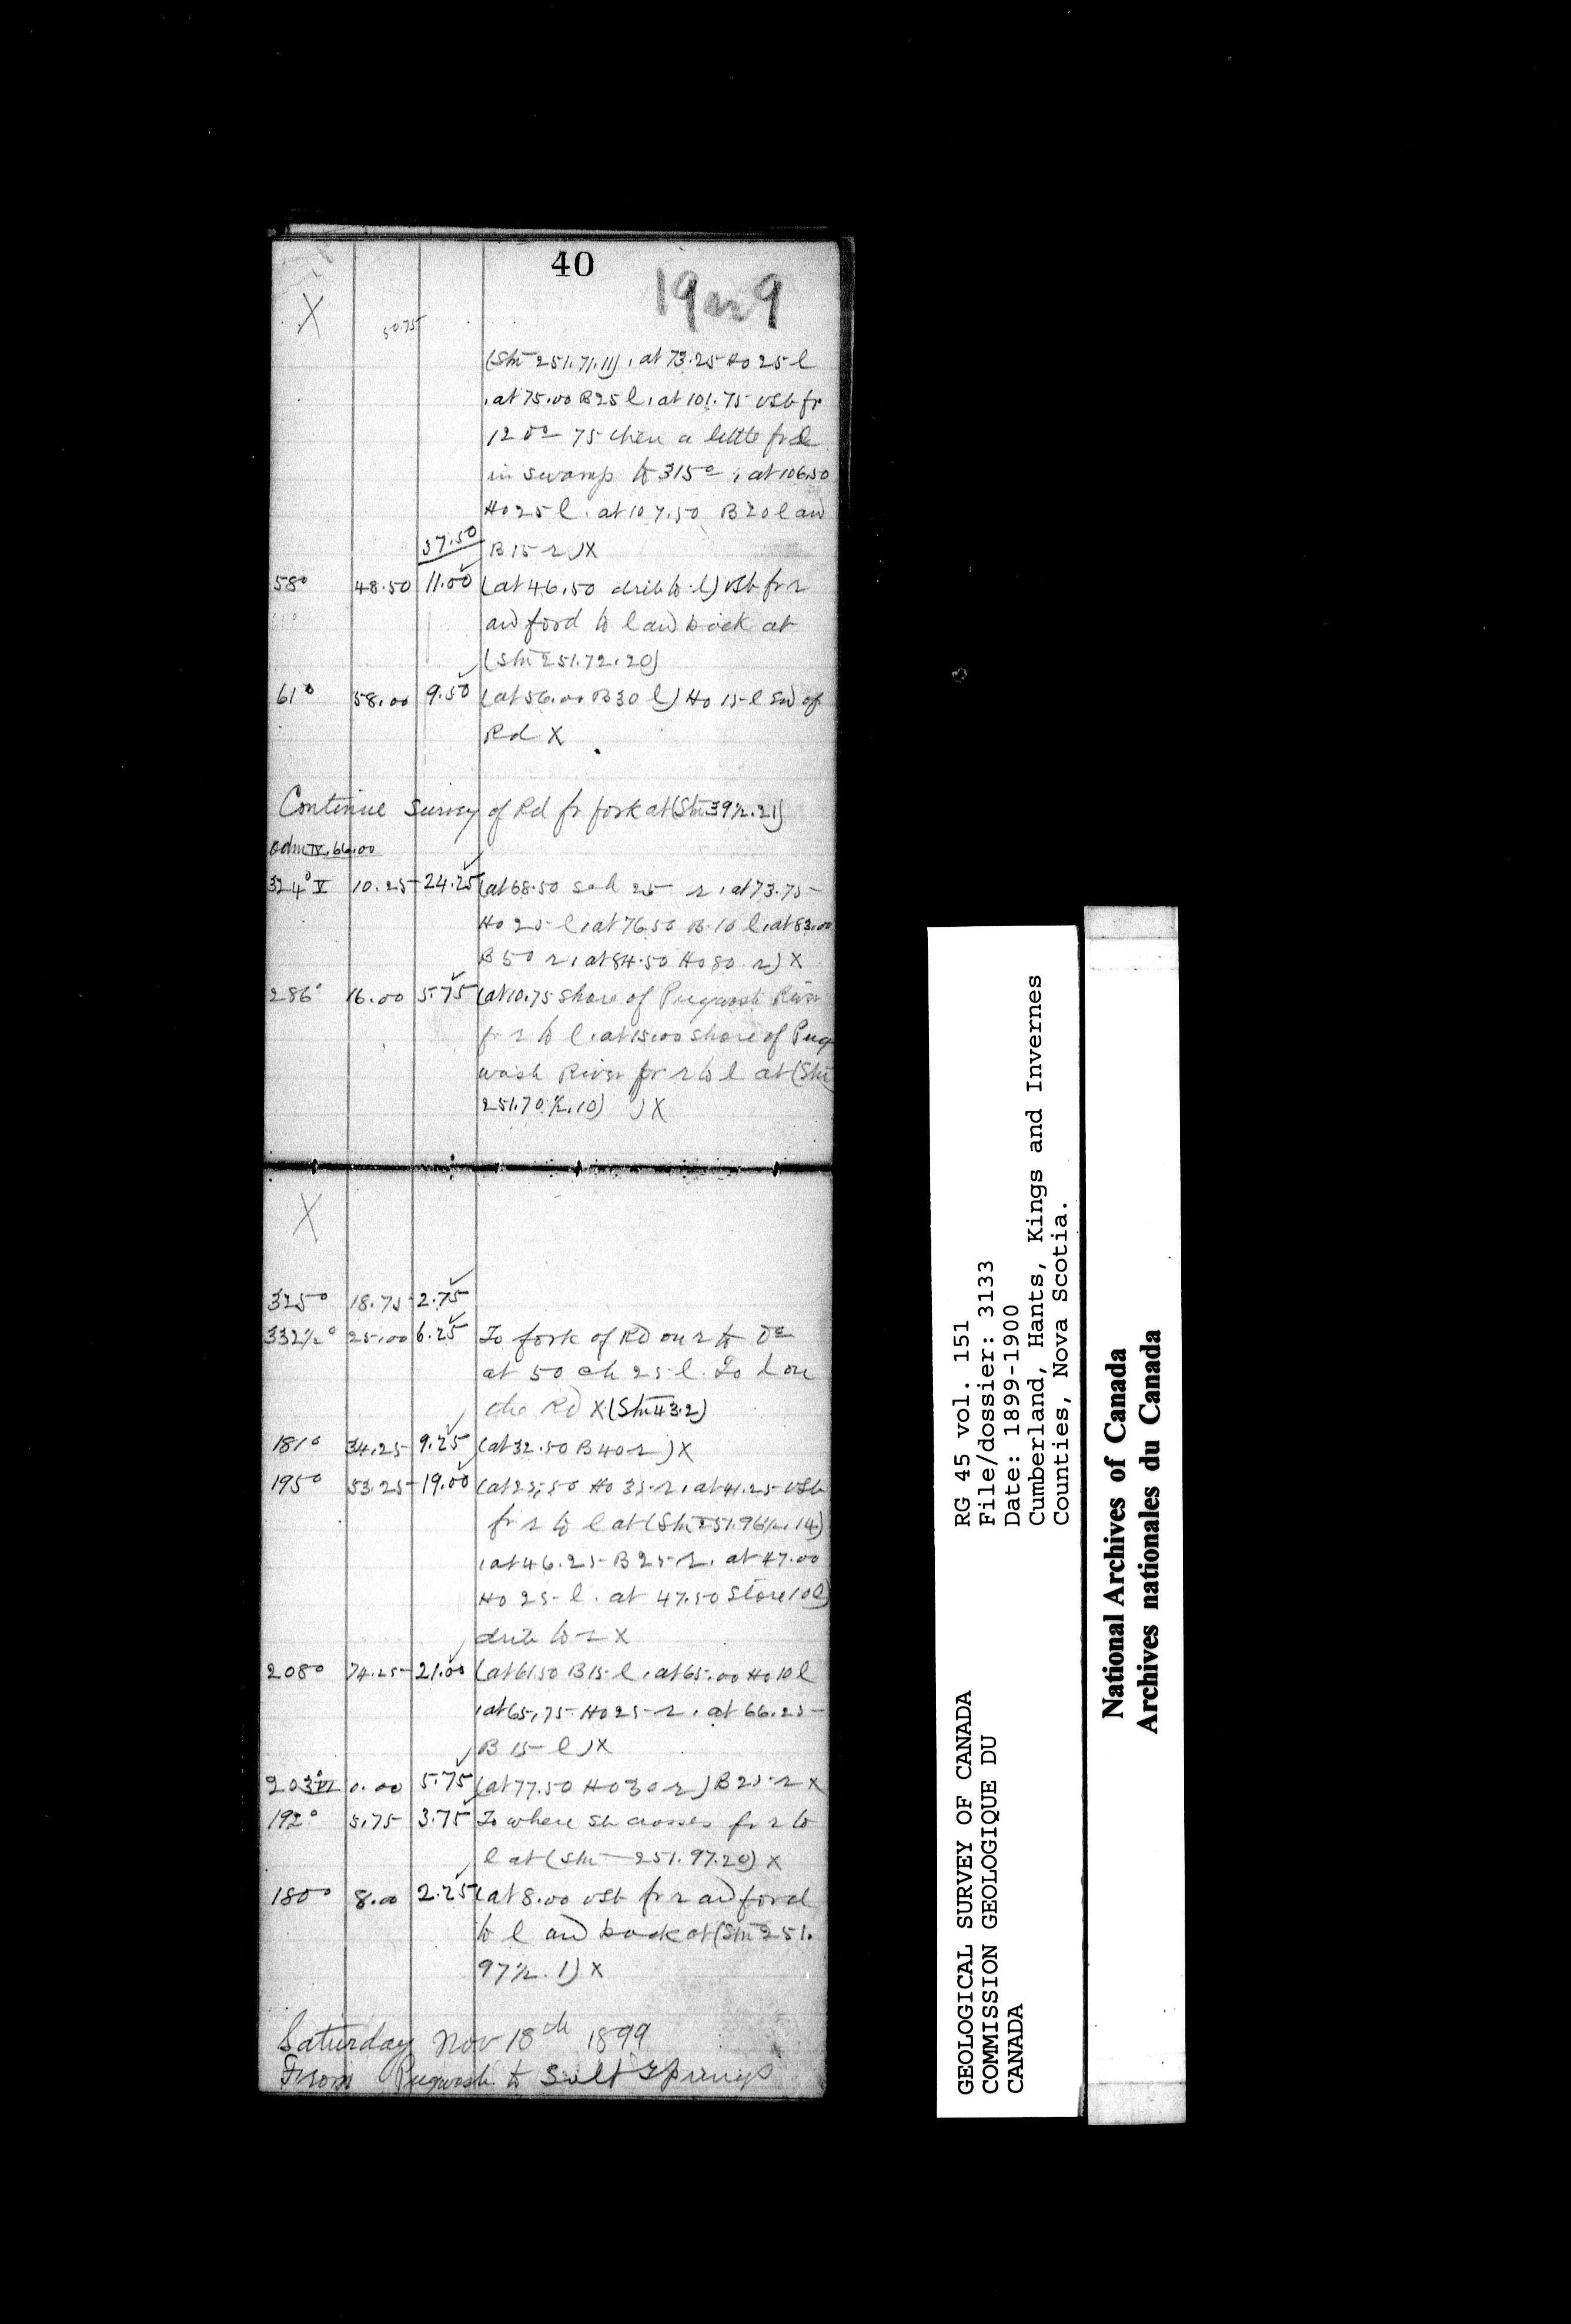 40
19 9
X
50.75
(Stn 251.71.11), at 73.25 Ho 25 l
, at 75.00 B 25 l, at 101.75 vsb fr
120° 75 then a little fr
in swamp to 315°, at 106.50
Ho 25 l. at 107.50 B 20 l and
37.50 B 15 r) X
58° 48.50 11.00 (at 46.50 drib to l) vsb fr r
and ford to l and back at
(Stn 251.72.20)
61° 58.00 9.50 (at 56.00 B 30 l) Ho 15 l End of
Rd X
Continue Survey of Rd fr fork at (Stn 39½.21)
odm IV. 66.00
324° V 10.25 24.25 (at 68.50 sch 25 r, at 73.75
Ho 25 l, at 76.50 B 10 l, at 83.00
B 50 r, at 84.50 Ho 80 r) X
286° 16.00 5.75 (at 10.75 shore of Pugwash River
fr r to l, at 15.00 shore of Pug
wash River fr r to l at (Stn
251.70½.10) ) X
X
325° 18.75 2.75
332½° 25.00 6.25 To fork of Rd on r to
at 50 ch 25 l. To l on
the Rd X (Stn 43.2)
181° 34.25 9.25 (at 32.50 B 40 r) X
195° 53.25 19.00 (at 25.50 Ho 35 r, at 41.25 vsb
fr r to l at (Stn 251.96½.14)
, at 46.25 B 25 r, at 47.00
Ho 25 l. at 47.50 Store 10 l)
drib to r X
208° 74.25 21.00 (at 61.50 B 15 l, at 65.00 Ho 10 l
, at 65.75 Ho 25 r, at 66.25
B 15 l) X
203° VI 0.00 5.75 (at 77.50 Ho 30 r) B 25 r X
192° 5.75 3.75 To where sb crosses fr r to
l at (Stn 251.97.20) X
180° 8.00 2.25 (at 8.00 vsb fr r and ford
to l and back at (Stn 251.
97½.1) X
Saturday Nov 18th 1899
From Pugwash to Salt Springs
RG 45 vol. 151
File/dossier: 3133
Date: 1899-1900
Cumberland, Hants, Kings and Invernes
Counties, Nova Scotia.
GEOLOGICAL SURVEY OF CANADA
COMMISSION GEOLOGIQUE DU
CANADA
National Archives of Canada
Archives nationales du Canada